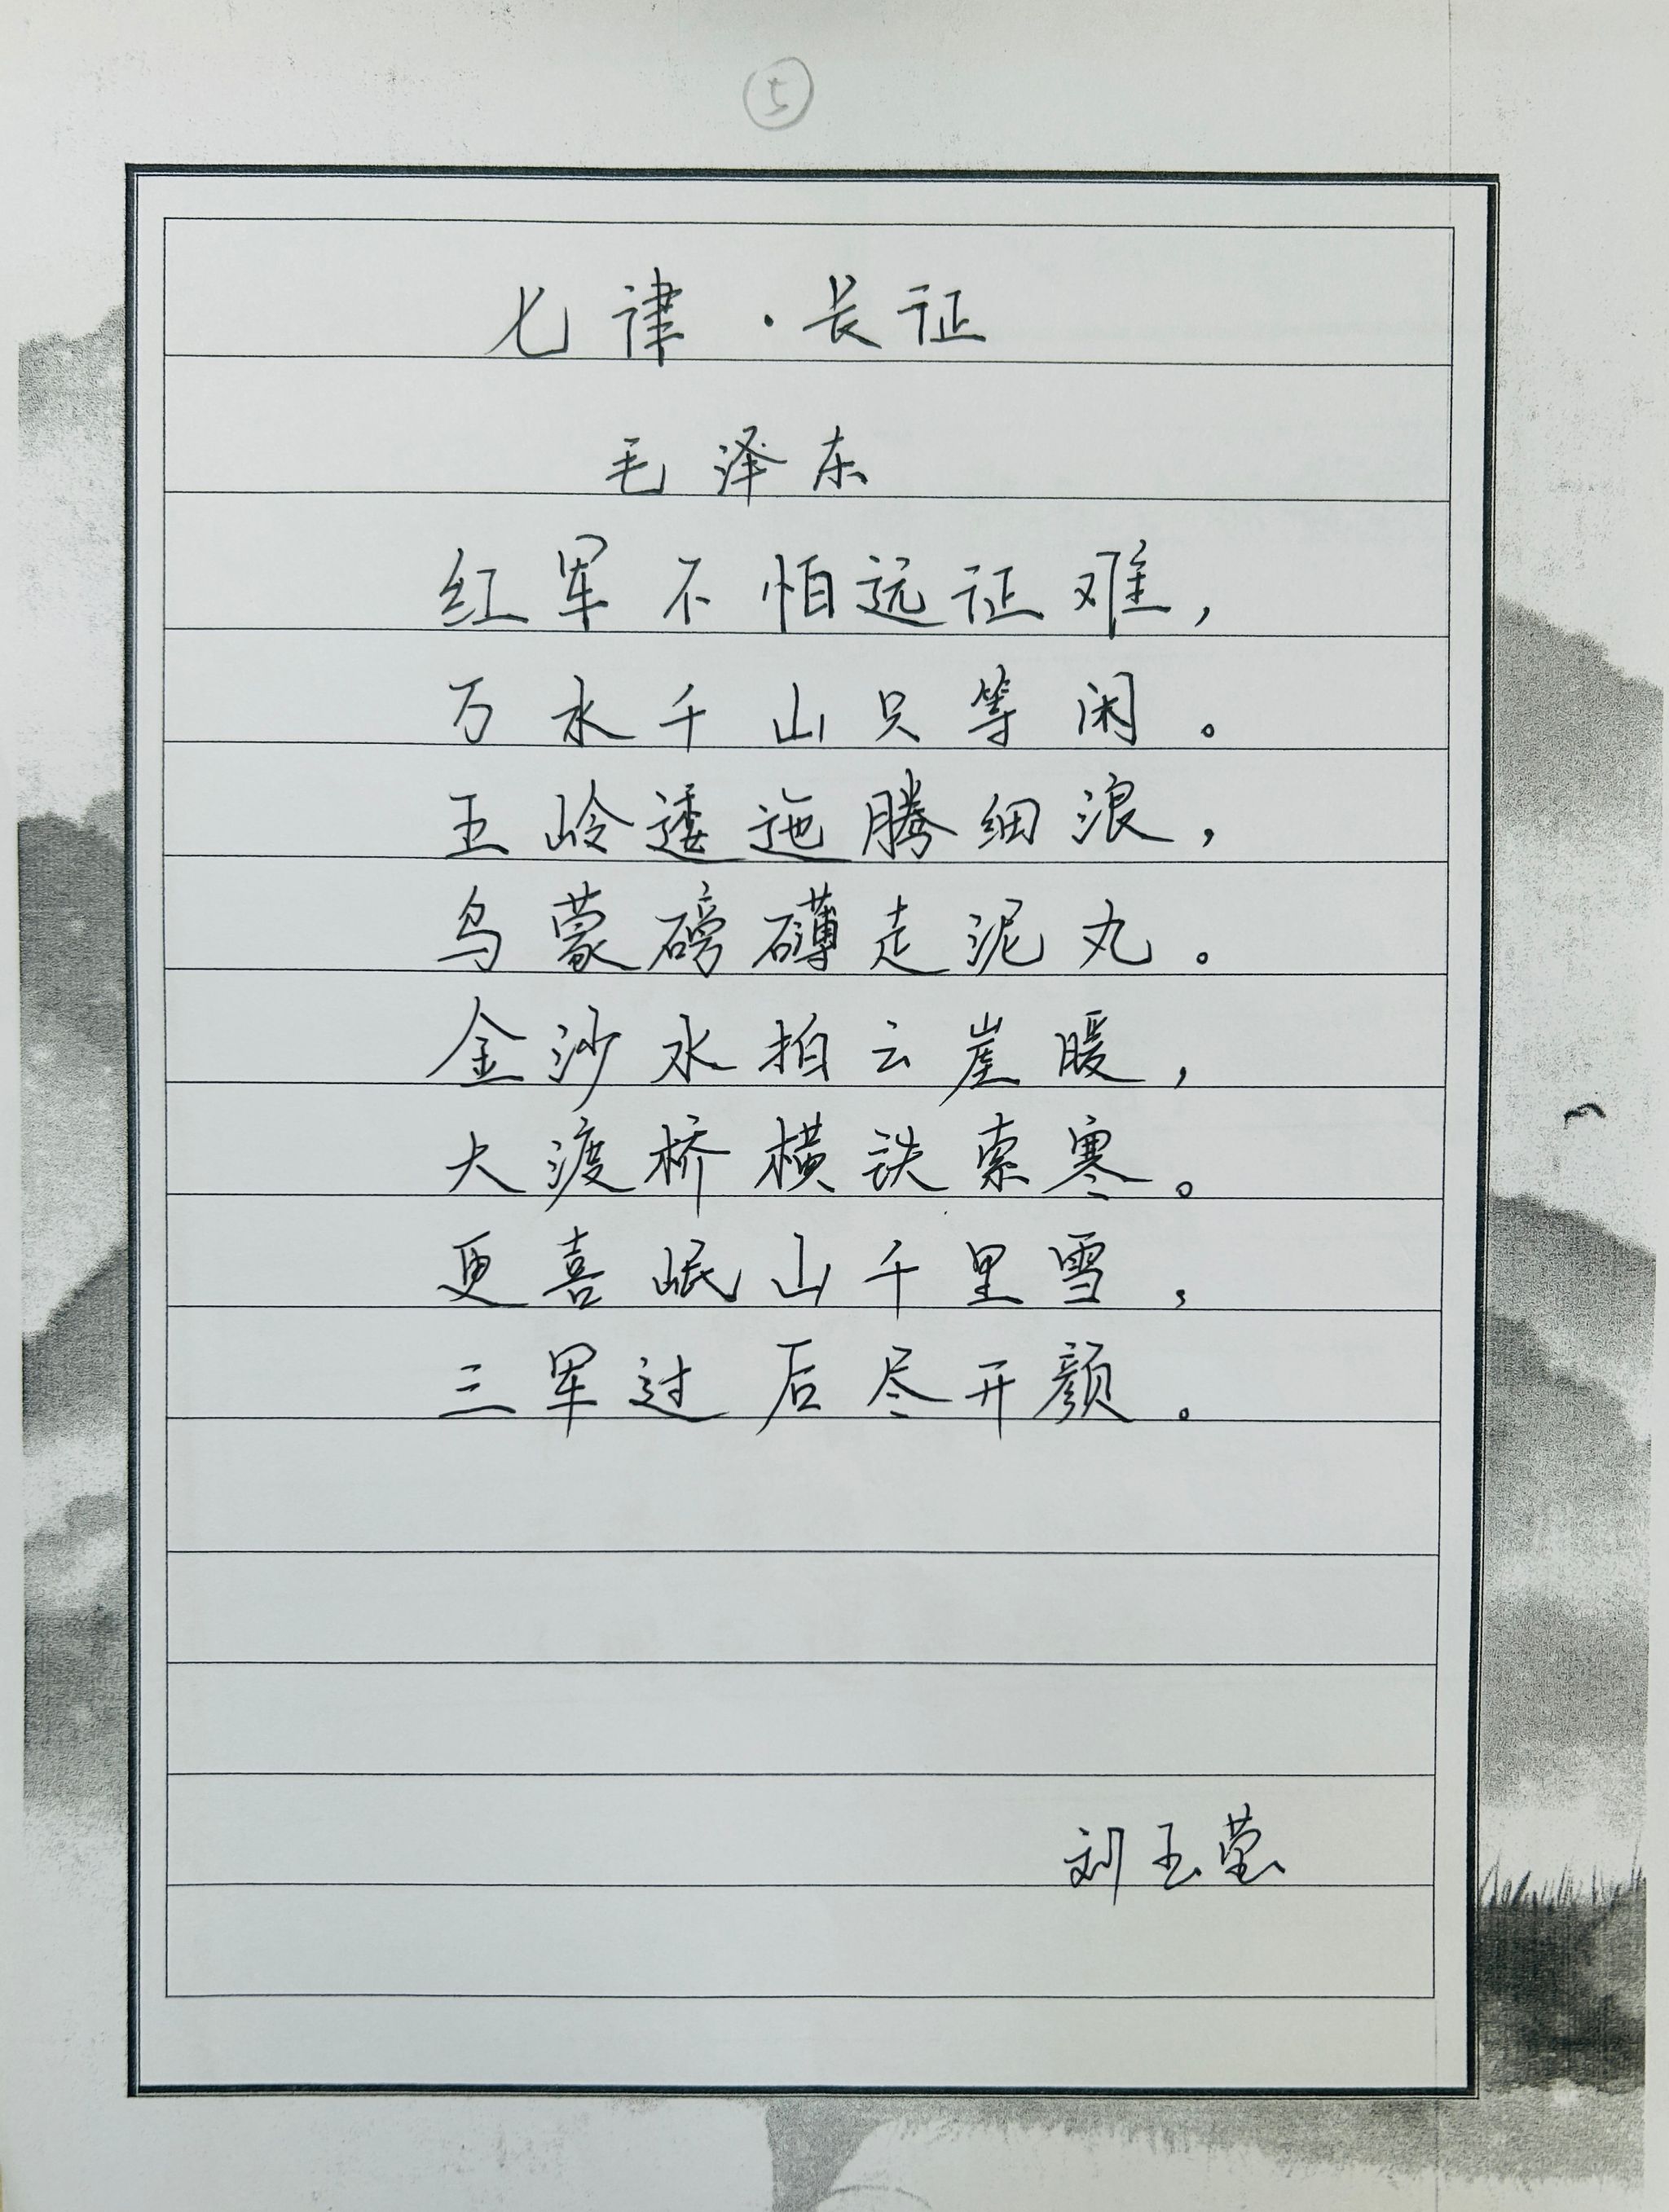 ⑤
七律·长征
毛泽东
红军不怕远征难，
万水千山只等闲。
五岭逶迤腾细浪，
乌蒙磅礴走泥丸。
金沙水拍云崖暖，
大渡桥横铁索寒。
更喜岷山千里雪，
三军过后尽开颜。
刘玉莹